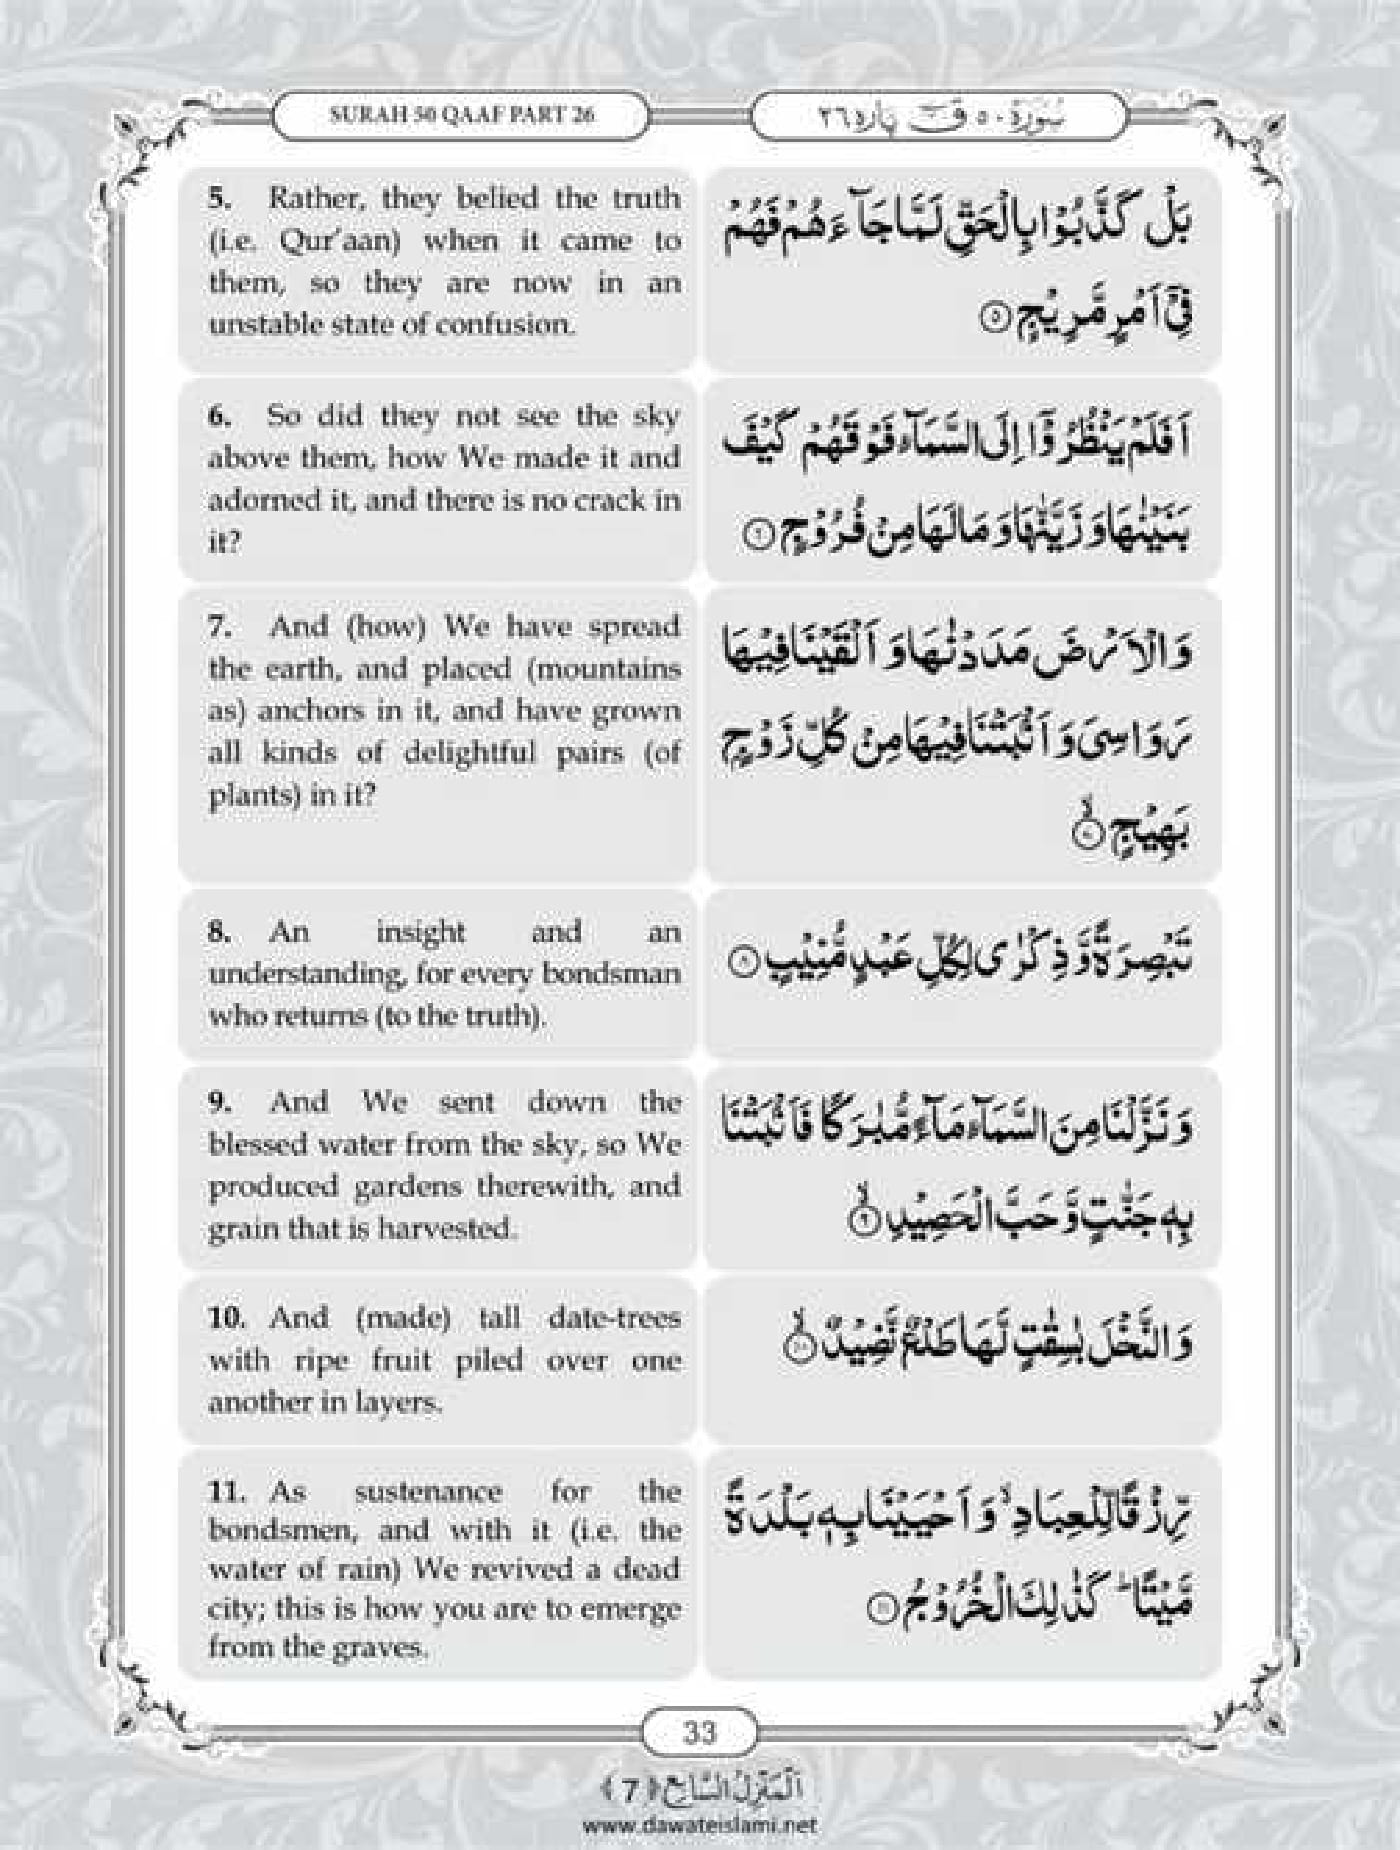 SURAH 50 QAAF PART 26
سُوْرَة ٥٠ قٓ پارہ ٢٦
5. Rather, they belied the truth
(i.e. Qur'aan) when it came to
them, so they are now in an
unstable state of confusion.
بَلْ كَذَّبُوْا بِالْحَقِّ لَمَّا جَآءَهُمْ فَهُمْ
فِیْۤ اَمْرٍ مَّرِیْجٍ ۝۵
6. So did they not see the sky
above them, how We made it and
adorned it, and there is no crack in
it?
اَفَلَمْ یَنْظُرُوْۤا اِلَى السَّمَآءِ فَوْقَهُمْ كَیْفَ
بَنَیْنٰهَا وَ زَیَّنّٰهَا وَ مَا لَهَا مِنْ فُرُوْجٍ ۝۶
7. And (how) We have spread
the earth, and placed (mountains
as) anchors in it, and have grown
all kinds of delightful pairs (of
plants) in it?
وَ الْاَرْضَ مَدَدْنٰهَا وَ اَلْقَیْنَا فِیْهَا
رَوَاسِیَ وَ اَنْۢبَتْنَا فِیْهَا مِنْ كُلِّ زَوْجٍۭ
بَهِیْجٍ ۝۷ۙ
8. An insight and an
understanding, for every bondsman
who returns (to the truth).
تَبْصِرَةً وَّ ذِكْرٰى لِكُلِّ عَبْدٍ مُّنِیْبٍ ۝۸
9. And We sent down the
blessed water from the sky, so We
produced gardens therewith, and
grain that is harvested.
وَ نَزَّلْنَا مِنَ السَّمَآءِ مَآءً مُّبٰرَكًا فَاَنْۢبَتْنَا
بِهٖ جَنّٰتٍ وَّ حَبَّ الْحَصِیْدِ ۝۹ۙ
10. And (made) tall date-trees
with ripe fruit piled over one
another in layers.
وَ النَّخْلَ بٰسِقٰتٍ لَّهَا طَلْعٌ نَّضِیْدٌ ۝۱۰ۙ
11. As sustenance for the
bondsmen, and with it (i.e. the
water of rain) We revived a dead
city; this is how you are to emerge
from the graves.
رِّزْقًا لِّلْعِبَادِۙ وَ اَحْیَیْنَا بِهٖ بَلْدَةً
مَّیْتًاؕ كَذٰلِكَ الْخُرُوْجُ ۝۱۱
33
اَلْمَنْزِلُ السَّابِع ﴿7﴾
www.dawateislami.net